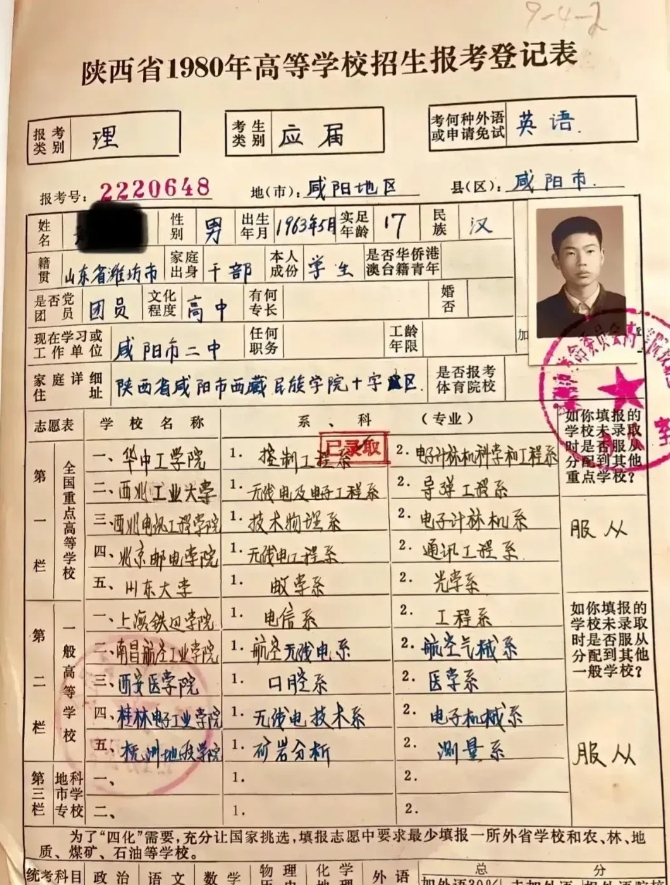 9-4-2
陕西省1980年高等学校招生报考登记表
报考类别 理 考生类别 应届 考何种外语或申请免试 英语
报考号：2220648 地(市)：咸阳地区 县(区)：咸阳市
姓名 性别 男 出生年月 1963年5月 实足年龄 17 民族 汉
籍贯 山东省潍坊市 家庭出身 干部 本人成份 学生 是否华侨港澳台籍青年
是否党团员 团员 文化程度 高中 有何专长 婚否
现在学习或工作单位 咸阳市二中 任何职务 工龄年限 加
家庭详细住址 陕西省咸阳市西藏民族学院十字区 是否报考体育院校
志愿表 学校名称 系、科 (专业) 如你填报的学校未录取时是否服从分配到其他重点学校？
已录取
第一栏 全国重点高等学校
一、华中工学院 1. 控制工程系 2. 电子计祘机科学和工程系
二、西北工业大学 1. 无线电及电子工程系 2. 导弹工程系
三、西北电讯工程学院 1. 技术物理系 2. 电子计祘机系 服从
四、北京邮电学院 1. 无线电工程系 2. 通讯工程系
五、山东大学 1. 数学系 2. 光学系
第二栏 一般高等学校 如你填报的学校未录取时是否服从分配到其他一般学校？
一、上海铁道学院 1. 电信系 2. 工程系
二、南昌航空工业学院 1. 航空无线电系 2. 航空气械系
三、西安医学院 1. 口腔系 2. 医学系
四、桂林电子工业学院 1. 无线电技术系 2. 电子机械系 服从
五、 1. 矿岩分析 2. 测量系
第三栏 地市专科学校
一、 1. 2.
二、 1. 2.
为了“四化”需要，充分让国家挑选，填报志愿中要求最少填报一所外省学校和农、林、地
质、煤矿、石油等学校。
统考科目 政治 语文 数学 物理 化学 外语 总 分